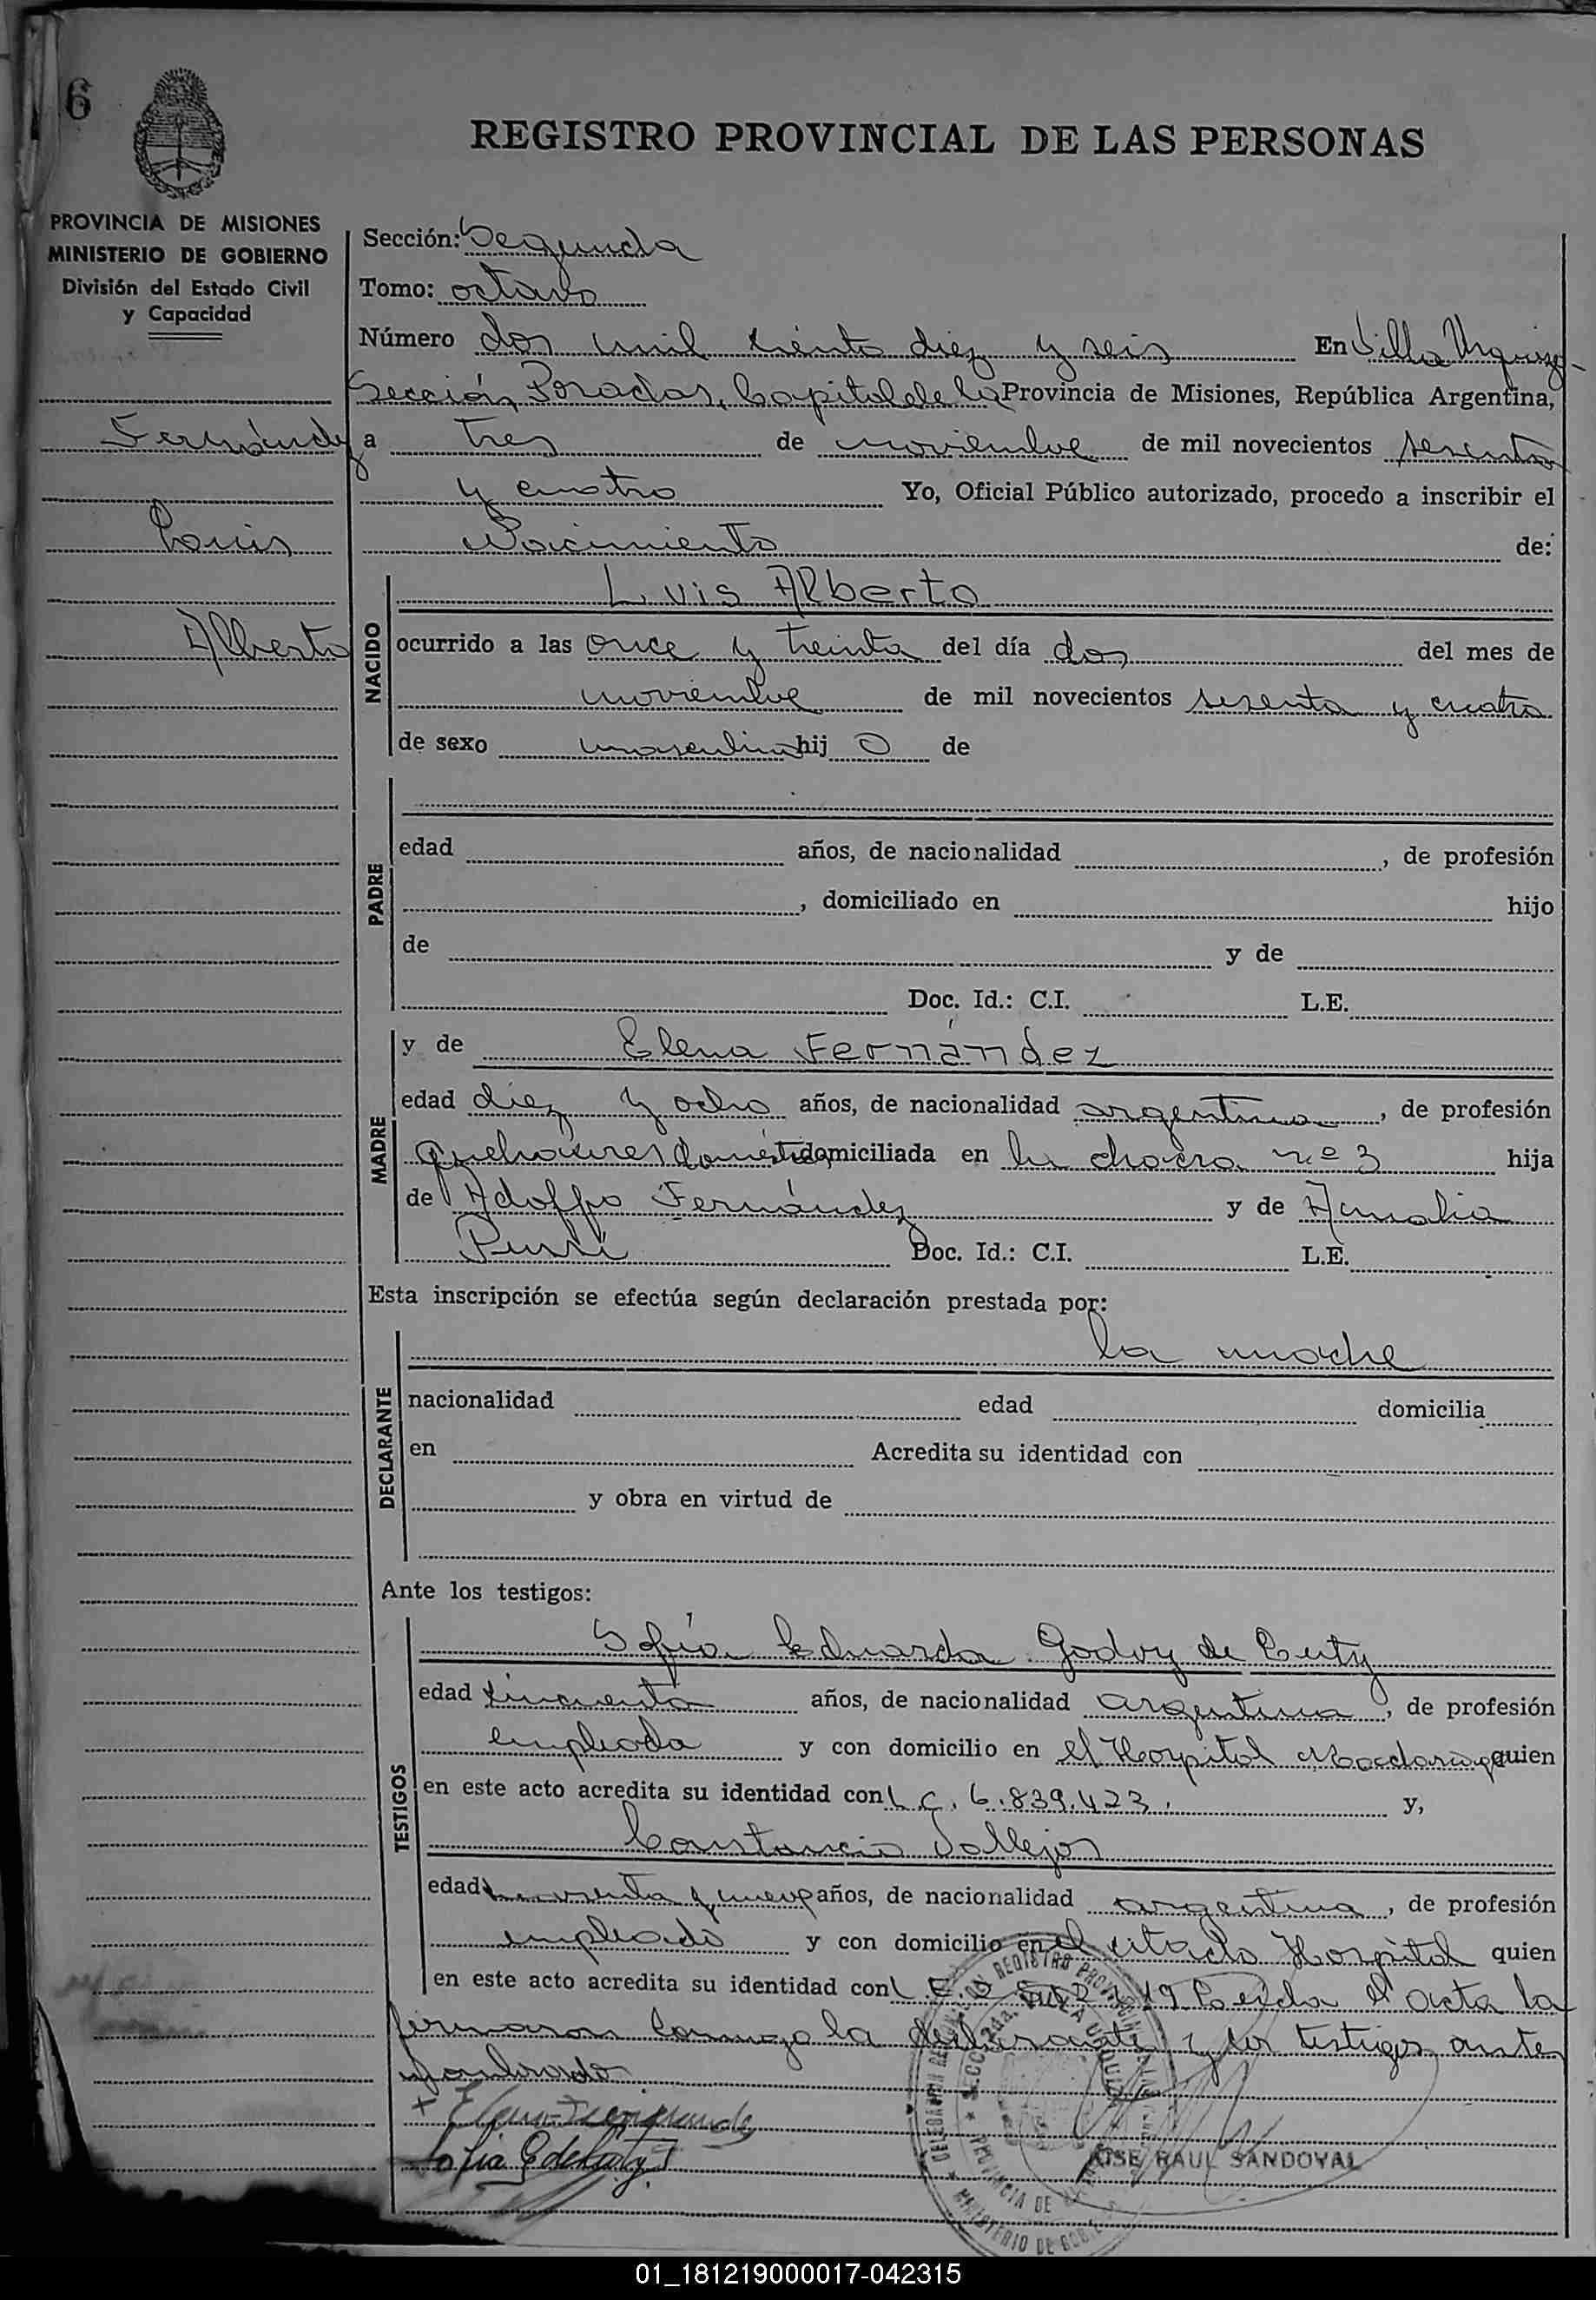 6
REGISTRO PROVINCIAL DE LAS PERSONAS
PROVINCIA DE MISIONES
MINISTERIO DE GOBIERNO
División del Estado Civil
y Capacidad
Fernández
Luis
Alberto
Sección: Segunda
Tomo: octavo
Número dos mil ciento diez y seis En Villa Urquiza
Sección Posadas, Capital de la Provincia de Misiones, República Argentina,
a tres de noviembre de mil novecientos sesenta
y cuatro Yo, Oficial Público autorizado, procedo a inscribir el
Nacimiento de:
NACIDO
Luis Alberto
ocurrido a las once y treinta del día dos del mes de
noviembre de mil novecientos sesenta y cuatro
de sexo masculino hij o de
PADRE
edad años, de nacionalidad , de profesión
, domiciliado en hijo
de y de
Doc. Id.: C.I. L.E.
MADRE
y de Elena Fernández
edad diez y ocho años, de nacionalidad argentina, de profesión
quehaceres domésticos domiciliada en la chacra nº 3 hija
de Adolfo Fernández y de Amalia
Doc. Id.: C.I. L.E.
Esta inscripción se efectúa según declaración prestada por:
DECLARANTE
la madre
nacionalidad edad domicilia
en Acredita su identidad con
y obra en virtud de
Ante los testigos:
TESTIGOS
Sofía Eduarda Godoy de
edad cincuenta años, de nacionalidad argentina, de profesión
empleada y con domicilio en el Hospital Madariaga quien
en este acto acredita su identidad con L.C. 6.839.423. y,
Constancio Vallejos
edad y nueve años, de nacionalidad argentina, de profesión
empleado y con domicilio en el citado Hospital quien
en este acto acredita su identidad con L.E. Leída el acta la
firmaron conmigo la declarante y los testigos ante
nombrado
JOSE RAUL SANDOVAL
01_181219000017-042315